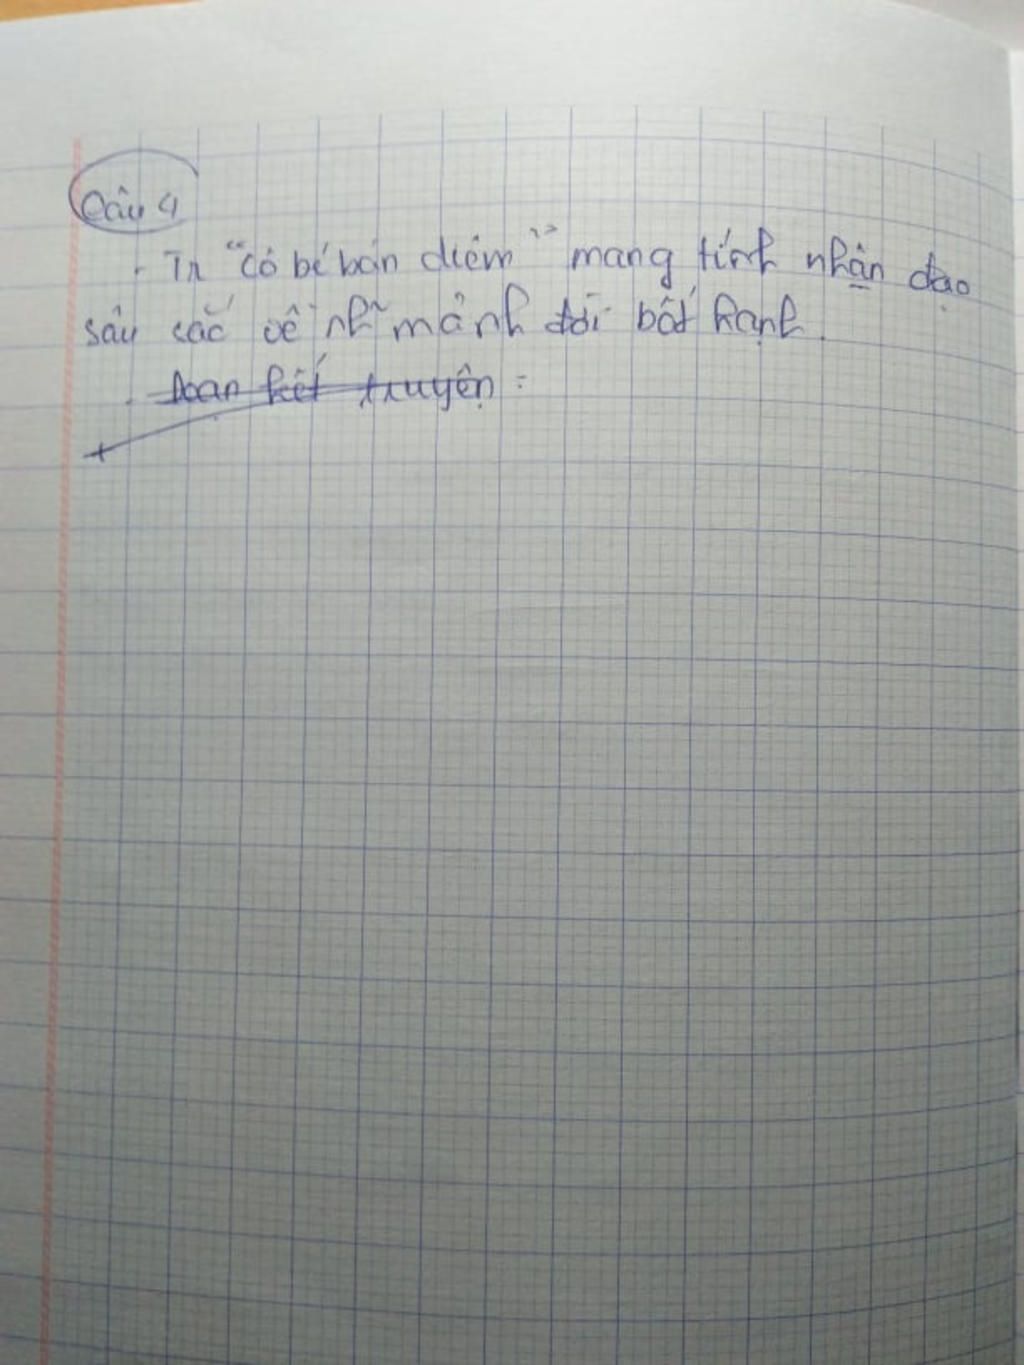 Câu 4
- Tr "cô bé bán diêm" mang tính nhân đạo
sâu sắc về nh~ mảnh đời bất hạnh.
. Đoạn kết truyện :
+